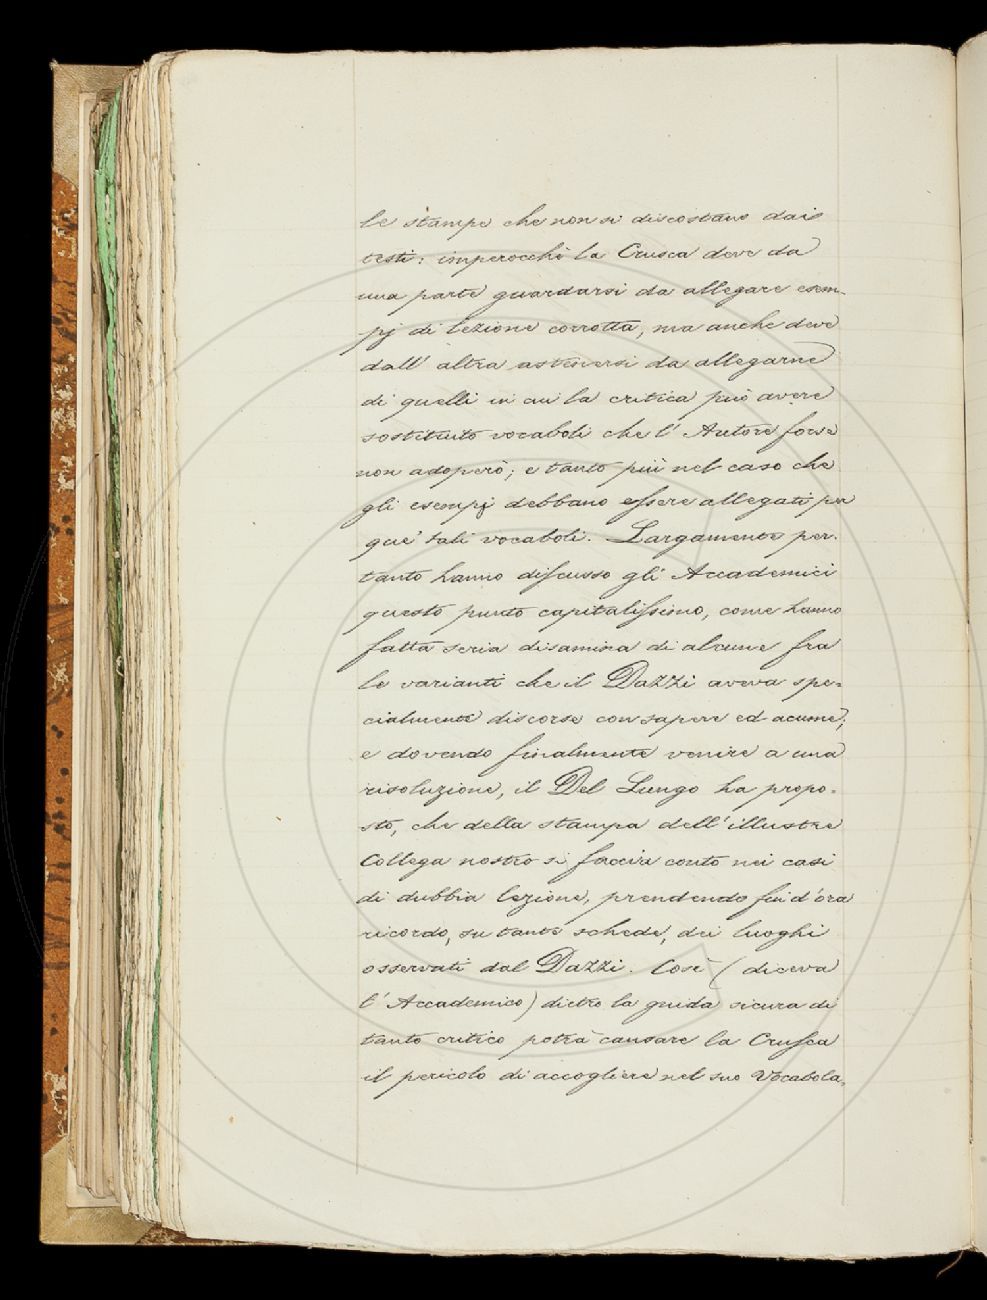 le stampe che non si discostano dai
testi: imperocchè la Crusca deve da
una parte guardarsi da allegare esem-
pj di lezione corrotta, ma anche deve
dall' altra astenersi da allegarne
di quelli in cui la critica può avere
sostituito vocaboli che l' Autore forse
non adoperò; e tanto più nel caso che
gli esempj debbano essere allegati per
que' tali vocaboli. Largamente per-
tanto hanno discusso gli Accademici
questo punto capitalissimo, come hanno
fatta seria disamina di alcune fra
le varianti che il Dazzi aveva spe-
cialmente discorse con sapere ed acume;
e dovendo finalmente venire a una
risoluzione, il Del Lungo ha propo-
sto, che della stampa dell' illustre
Collega nostro si faccia conto nei casi
di dubbia lezione, prendendo fin d'ora
ricordo, su tante schede, dei luoghi
osservati dal Dazzi. Così (diceva
l' Accademico) dietro la guida sicura di
tanto critico potrà cansare la Crusca
il pericolo di accogliere nel suo Vocabola-